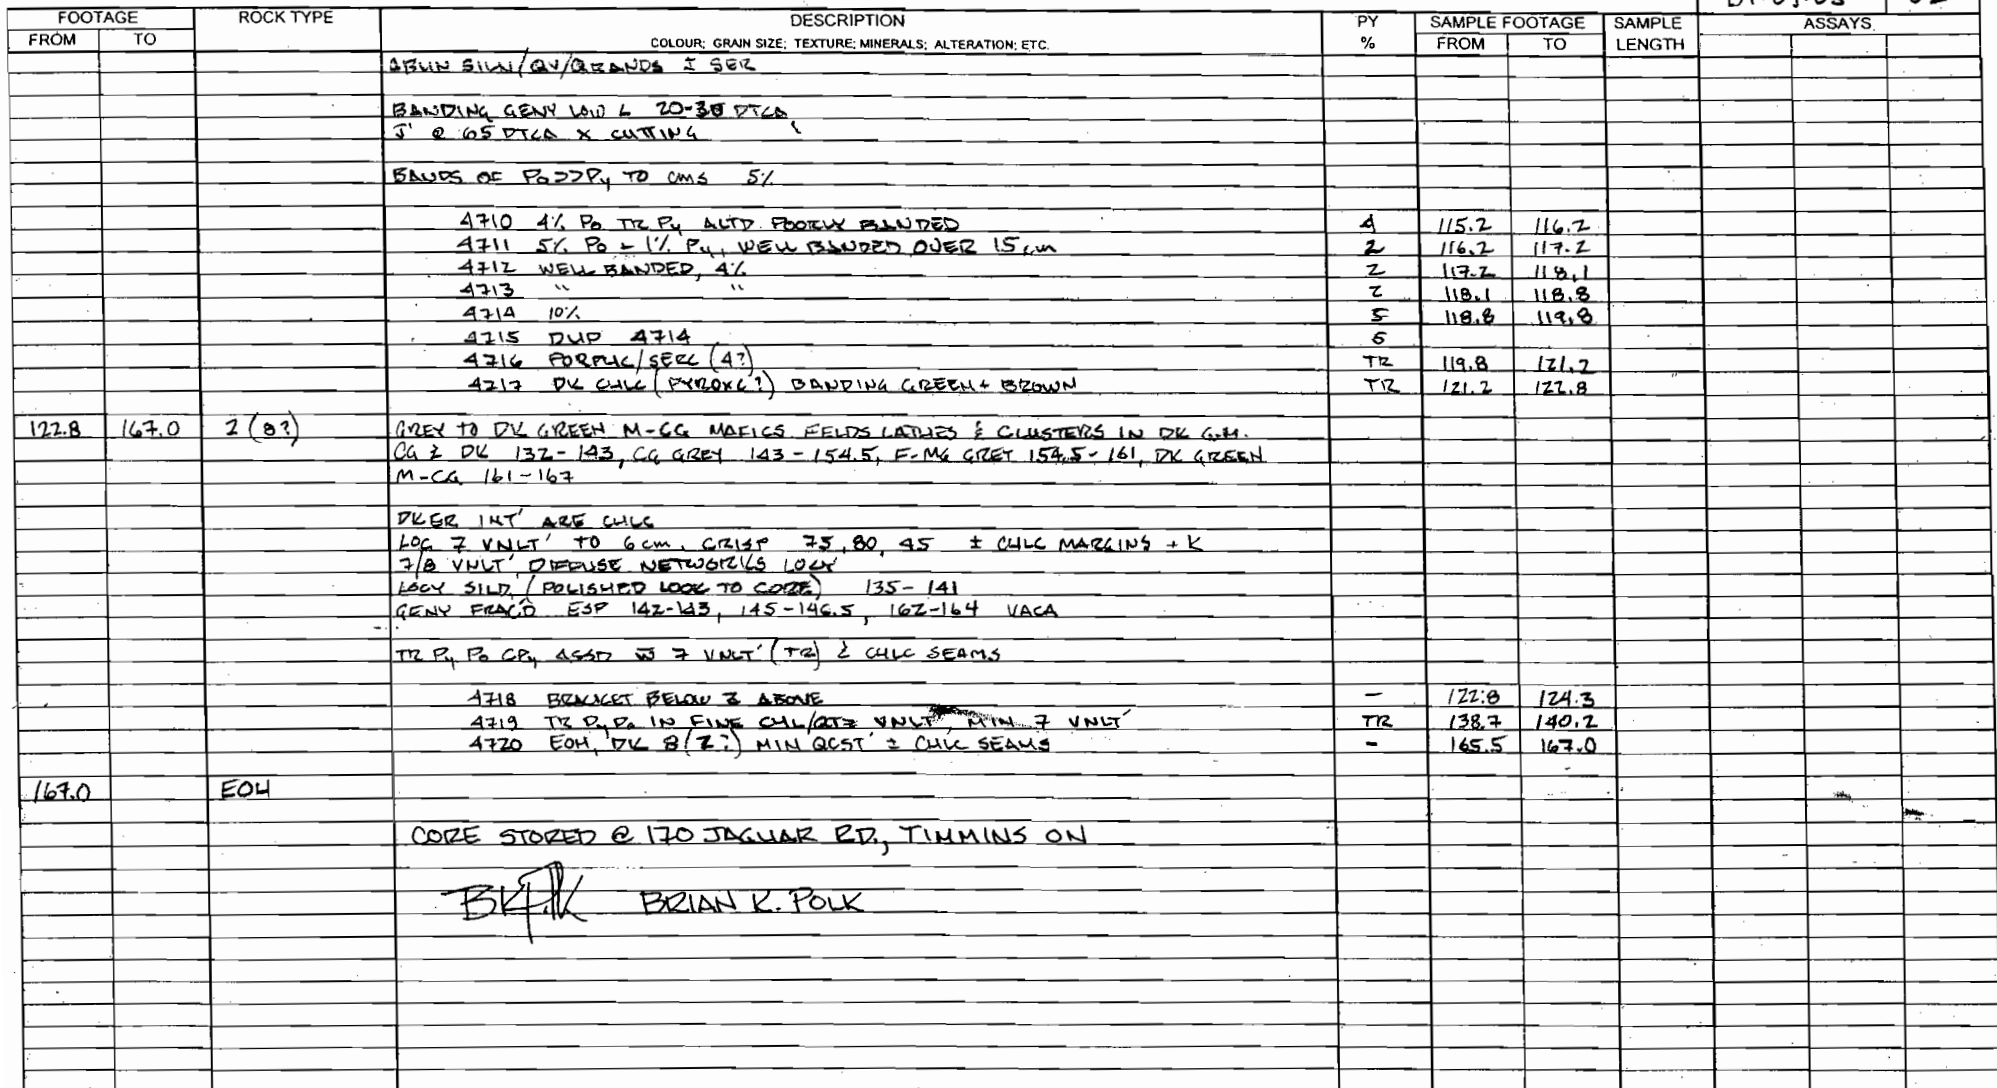 FOOTAGE ROCK TYPE DESCRIPTION PY SAMPLE FOOTAGE SAMPLE ASSAYS
FROM TO COLOUR; GRAIN SIZE; TEXTURE; MINERALS; ALTERATION; ETC. % FROM TO LENGTH
± SER
BANDING GENY LOW ∠ 20-30 DTCA
J' @ 65 DTCA X CUTTING
BANDS OF Po>>Py TO cms 5%
4710 4% Po TR Py ALTD POORLY BANDED 4 115.2 116.2
4711 5% Po - 1% Py, WELL BANDED OVER 15cm 2 116.2 117.2
4712 WELL BANDED, 4% 2 117.2 118.1
4713 " " 2 118.1 118.8
4714 10% 5 118.8 119.8
4715 DUP 4714
4716 PORPHC/SERC (4?) TR 119.8 121.2
4717 DK CHLC (PYROXC?) BANDING GREEN + BROWN TR 121.2 122.8
122.8 167.0 2 (8?) GREY TO DK GREEN M-CG MAFICS FELDS LATHES & CLUSTERS IN DK G.M.
CG & DK 132-143, CG GREY 143-154.5, F-MG GREY 154.5-161, DK GREEN
M-CG 161-167
DKER INT' ARE CHLC
LOC 7 VNLT' TO 6cm, CRISP 75, 80, 45 ± CHLC MARGINS + K
7/8 VNLT' DIFFUSE NETWORKS LOCY
LOCY SILD (POLISHED LOOK TO CORE) 135-141
GENY FRAC'D ESP 142-143, 145-146.5, 162-164 VACA
TR Py Po CPy ASSD w 7 VNLT' (TR) & CHLC SEAMS
4718 BRACKET BELOW & ABOVE - 122.8 124.3
4719 TR Py Po IN FINE CHL/QTZ VNLT' MIN 7 VNLT' TR 138.7 140.2
4720 EOH, DK 8(2?) MIN QCST' ± CHLC SEAMS - 165.5 167.0
167.0 EOH
CORE STORED @ 170 JAGUAR RD., TIMMINS ON
BRIAN K. POLK